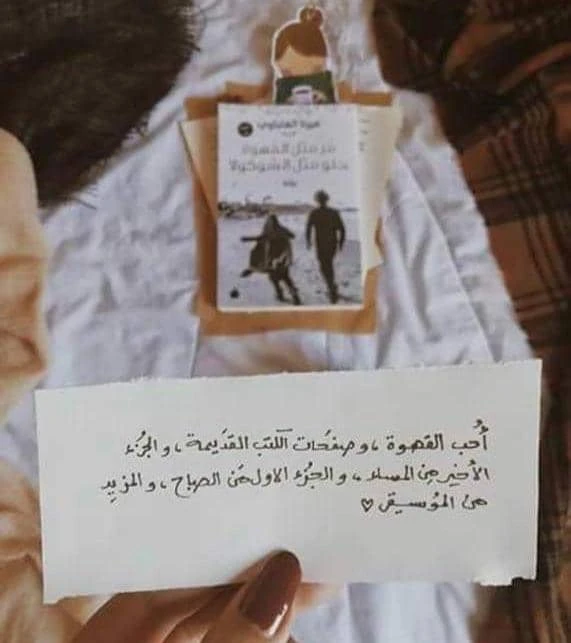 مر مثل القهوة
حلو مثل الشوكولا
رواية
أُحب القهوة ، وصفحَات الكتب القدَيمة ، و الجزُء
الأخير مِن المساء ، و الجزُء الاول مَن الصباح ، و المزيِد
من المُوسيقى ♡